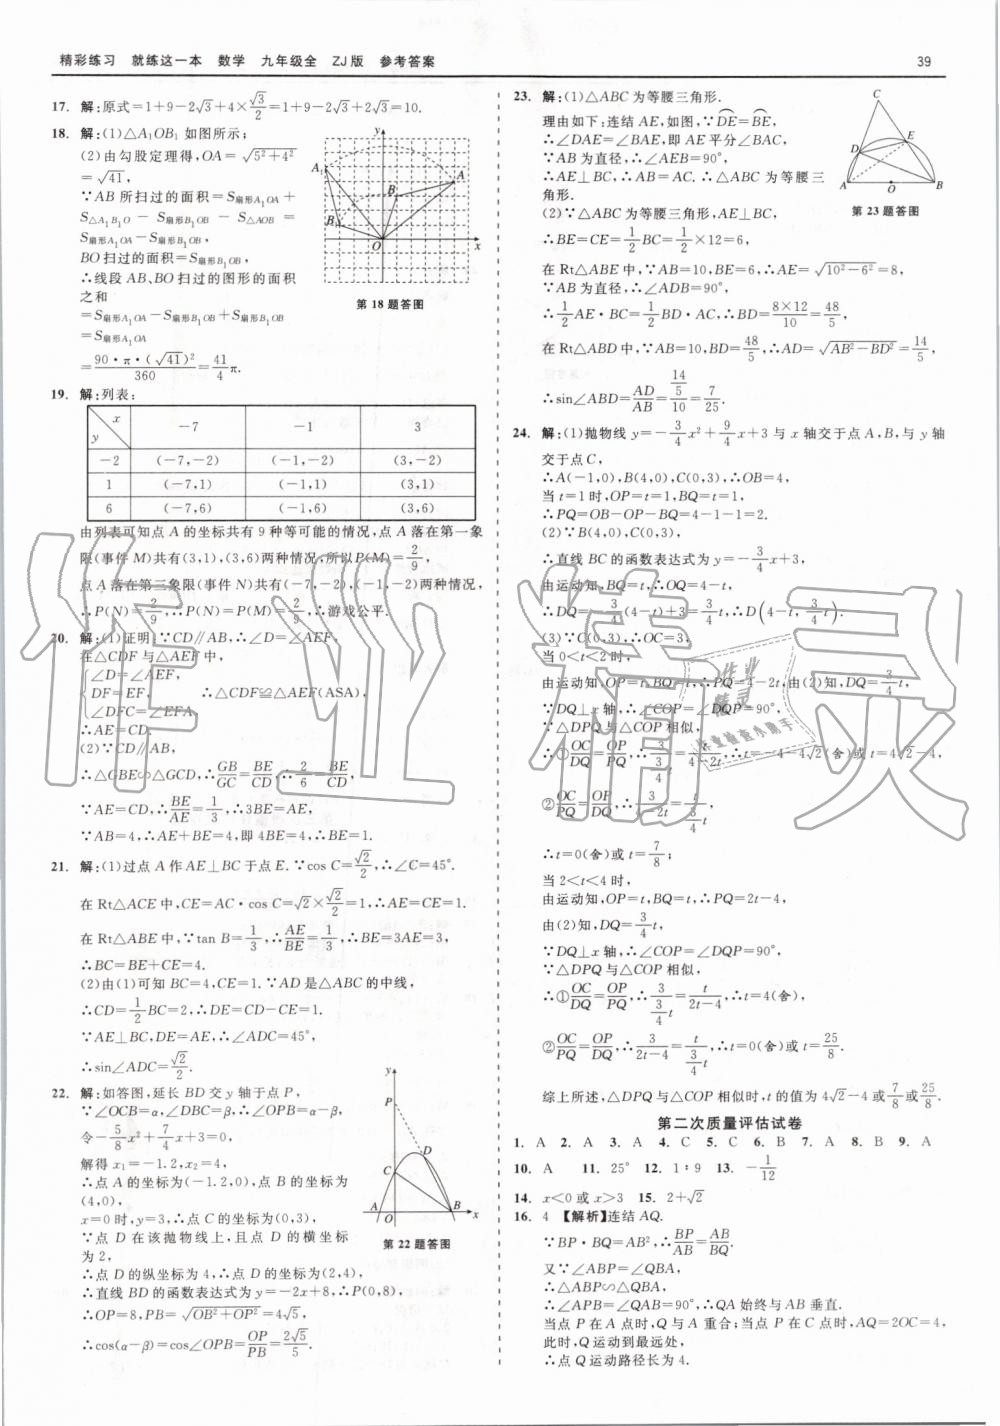 精彩练习 就练这一本 数学 九年级全 ZJ版 参考答案
39
17. 解:原式=1+9-2√3+4×√3/2=1+9-2√3+2√3=10.
18. 解:(1)△A₁OB₁ 如图所示;
(2)由勾股定理得,OA=√(5²+4²)
=√41,
∵AB 所扫过的面积=S扇形A₁OA+
S△A₁B₁O-S扇形B₁OB-S△AOB=
S扇形A₁OA-S扇形B₁OB,
BO扫过的面积=S扇形B₁OB,
∴线段 AB、BO 扫过的图形的面积
之和
=S扇形A₁OA-S扇形B₁OB+S扇形B₁OB
=S扇形A₁OA
=90·π·(√41)²/360=41/4π.
y
A₁
A
B
B₁
O
x
第18题答图
19. 解:列表:
x
y
-7 -1 3
-2 (-7,-2) (-1,-2) (3,-2)
1 (-7,1) (-1,1) (3,1)
6 (-7,6) (-1,6) (3,6)
由列表可知点 A 的坐标共有 9 种等可能的情况,点 A 落在第一象
限(事件 M)共有(3,1),(3,6)两种情况,所以P(M)=2/9,
点 A 落在第三象限(事件 N)共有(-7,-2),(-1,-2)两种情况,
∴P(N)=2/9,∴P(N)=P(M)=2/9,∴游戏公平.
20. 解:(1)证明:∵CD∥AB,∴∠D=∠AEF,
在△CDF 与△AEF 中,
∠D=∠AEF,
DF=EF, ∴△CDF≌△AEF(ASA),
∠DFC=∠EFA,
∴AE=CD.
(2)∵CD∥AB,
∴△GBE∽△GCD,∴GB/GC=BE/CD,∴2/6=BE/CD,
∵AE=CD,∴BE/AE=1/3,∴3BE=AE,
∵AB=4,∴AE+BE=4,即 4BE=4,∴BE=1.
21. 解:(1)过点 A 作 AE⊥BC 于点 E.∵cos C=√2/2,∴∠C=45°.
在 Rt△ACE 中,CE=AC·cos C=√2×√2/2=1,∴AE=CE=1.
在 Rt△ABE 中,∵tan B=1/3,∴AE/BE=1/3,∴BE=3AE=3,
∴BC=BE+CE=4.
(2)由(1)可知 BC=4,CE=1.∵AD 是△ABC 的中线,
∴CD=1/2BC=2,∴DE=CD-CE=1.
∵AE⊥BC,DE=AE,∴∠ADC=45°,
∴sin∠ADC=√2/2.
22. 解:如答图,延长 BD 交 y 轴于点 P,
∵∠OCB=α,∠DBC=β,∴∠OPB=α-β,
令-5/8x²+7/4x+3=0,
解得 x₁=-1.2,x₂=4,
∴点 A 的坐标为(-1.2,0),点 B 的坐标为
(4,0),
x=0 时,y=3,∴点 C 的坐标为(0,3),
∵点 D 在该抛物线上,且点 D 的横坐标
为 2,
∴点 D 的纵坐标为 4,∴点 D 为(2,4),
∴直线 BD 的函数表达式为 y=-2x+8,∴P(0,8),
∴OP=8,PB=√(OB²+OP²)=4√5,
∴cos(α-β)=cos∠OPB=OP/PB=2√5/5.
y
P
D
C
A
O
B
x
第22题答图
23. 解:(1)△ABC 为等腰三角形.
理由如下:连结 AE,如图,∵DE=BE,
∴∠DAE=∠BAE,即 AE 平分∠BAC,
∵AB 为直径,∴∠AEB=90°,
∴AE⊥BC,∴AB=AC.∴△ABC 为等腰三
角形.
(2)∵△ABC 为等腰三角形,AE⊥BC,
∴BE=CE=1/2BC=1/2×12=6,
在 Rt△ABE 中,∵AB=10,BE=6,∴AE=√(10²-6²)=8,
∵AB 为直径,∴∠ADB=90°,
∴1/2AE·BC=1/2BD·AC,∴BD=8×12/10=48/5,
在 Rt△ABD 中,∵AB=10,BD=48/5,∴AD=√(AB²-BD²)=14/5,
∴sin∠ABD=AD/AB=14/5/10=7/25.
C
E
D
A
O
B
第23题答图
24. 解:(1)抛物线 y=-3/4x²+9/4x+3 与 x 轴交于点 A,B,与 y 轴
交于点 C,
∴A(-1,0),B(4,0),C(0,3),∴OB=4,
当 t=1 时,OP=t=1,BQ=t=1,
∴PQ=OB-OP-BQ=4-1-1=2.
(2)∵B(4,0),C(0,3),
∴直线 BC 的函数表达式为 y=-3/4x+3,
由运动知,BQ=t,∴OQ=4-t,
∴DQ=-3/4(4-t)+3=3/4t,∴D(4-t,3/4t).
(3)∵C(0,3),∴OC=3,
当 0<t<2 时,
由运动知 OP=t,BQ=t,∴PQ=4-2t,由(2)知,DQ=3/4t,
∵DQ⊥x 轴,∴∠COP=∠DQP=90°,
∵△DPQ 与△COP 相似,
∴①OC/DQ=OP/PQ,∴3/3/4t=t/4-2t,∴t=-4-4√2(舍)或 t=4√2-4,
②OC/PQ=OP/DQ,∴3/4-2t=t/3/4t,
∴t=0(舍)或 t=7/8;
当 2<t<4 时,
由运动知,OP=t,BQ=t,∴PQ=2t-4,
由(2)知,DQ=3/4t,
∵DQ⊥x 轴,∴∠COP=∠DQP=90°,
∵△DPQ 与△COP 相似,
∴①OC/DQ=OP/PQ,∴3/3/4t=t/2t-4,∴t=4(舍),
②OC/PQ=OP/DQ,∴3/2t-4=t/3/4t,∴t=0(舍)或 t=25/8.
综上所述,△DPQ 与△COP 相似时,t 的值为 4√2-4 或7/8或25/8.
第二次质量评估试卷
1. A 2. A 3. A 4. C 5. C 6. B 7. A 8. B 9. A
10. A 11. 25° 12. 1∶9 13. -1/12
14. x<0 或 x>3 15. 2+√2
16. 4 【解析】连结 AQ.
∵BP·BQ=AB²,∴BP/AB=AB/BQ.
又∵∠ABP=∠QBA,
∴△ABP∽△QBA,
∴∠APB=∠QAB=90°,∴QA 始终与 AB 垂直.
当点 P 在 A 点时,Q 与 A 重合;当点 P 在 C 点时,AQ=2OC=4,
此时,Q 运动到最远处,
∴点 Q 运动路径长为 4.
作业精灵
作业
精灵
作业检查小助手